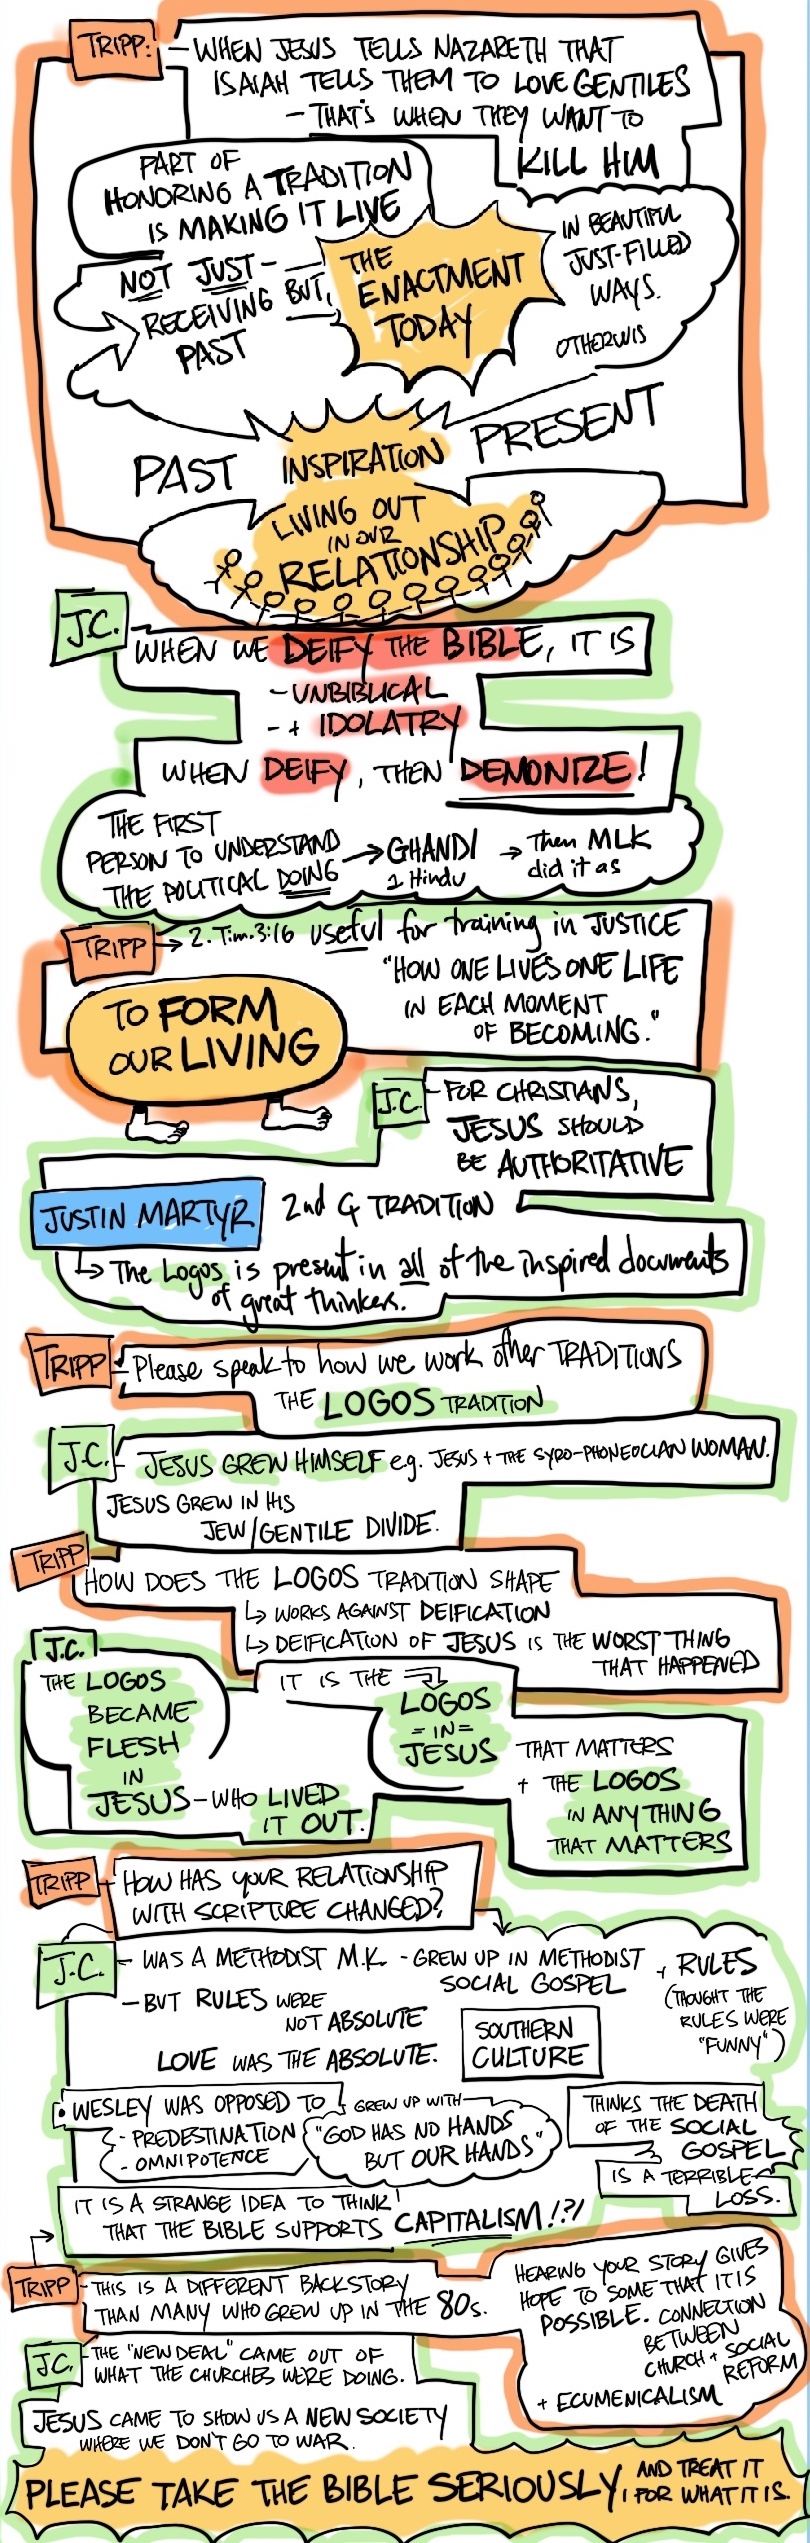 TRIPP:
- WHEN JESUS TELLS NAZARETH THAT
ISAIAH TELLS THEM TO LOVE GENTILES
- THAT'S WHEN THEY WANT TO
KILL HIM
PART OF
HONORING A TRADITION
IS MAKING IT LIVE
NOT JUST -
RECEIVING BUT,
PAST
THE
ENACTMENT
TODAY
IN BEAUTIFUL
JUST-FILLED
WAYS.
OTHERWIS
PAST
INSPIRATION
PRESENT
LIVING OUT
IN OUR
RELATIONSHIP
J.C.
WHEN WE DEIFY THE BIBLE, IT IS
- UNBIBLICAL
- + IDOLATRY
WHEN DEIFY, THEN DEMONIZE!
THE FIRST
PERSON TO UNDERSTAND
THE POLITICAL DOING
→ GHANDI
a Hindu
→ Then MLK
did it as
TRIPP
→ 2. Tim. 3:16 useful for training in JUSTICE
"HOW ONE LIVES ONE LIFE
IN EACH MOMENT
OF BECOMING."
TO FORM
OUR LIVING
J.C.
- FOR CHRISTIANS,
JESUS SHOULD
BE AUTHORITATIVE
JUSTIN MARTYR
2nd C TRADITION
↳ The Logos is present in all of the inspired documents
of great thinkers.
TRIPP
- Please speak to how we work other TRADITIONS
THE LOGOS TRADITION
J.C.
- JESUS GREW HIMSELF e.g. JESUS + THE SYRO-PHONEOCIAN WOMAN.
JESUS GREW IN HIS
JEW/GENTILE DIVIDE.
TRIPP
HOW DOES THE LOGOS TRADITION SHAPE
↳ WORKS AGAINST DEIFICATION
↳ DEIFICATION OF JESUS IS THE WORST THING
THAT HAPPENED
J.C.
THE LOGOS
BECAME
FLESH
IN
JESUS - WHO LIVED
IT OUT.
IT IS THE
LOGOS
= IN =
JESUS
THAT MATTERS
+ THE LOGOS
IN ANYTHING
THAT MATTERS
TRIPP
- HOW HAS YOUR RELATIONSHIP
WITH SCRIPTURE CHANGED?
J.C.
- WAS A METHODIST M.K. - GREW UP IN METHODIST
SOCIAL GOSPEL
+ RULES
(THOUGHT THE
RULES WERE
"FUNNY")
- BUT RULES WERE
NOT ABSOLUTE
LOVE WAS THE ABSOLUTE.
SOUTHERN
CULTURE
• WESLEY WAS OPPOSED TO
- PREDESTINATION
- OMNIPOTENCE
GREW UP WITH
"GOD HAS NO HANDS
BUT OUR HANDS"
THINKS THE DEATH
OF THE SOCIAL
GOSPEL
IS A TERRIBLE
LOSS.
IT IS A STRANGE IDEA TO THINK
THAT THE BIBLE SUPPORTS CAPITALISM!?!
TRIPP
- THIS IS A DIFFERENT BACKSTORY
THAN MANY WHO GREW UP IN THE 80s.
HEARING YOUR STORY GIVES
HOPE TO SOME THAT IT IS
POSSIBLE. CONNECTION
BETWEEN
CHURCH + SOCIAL
REFORM
+ ECUMENICALISM
J.C.
- THE "NEW DEAL" CAME OUT OF
WHAT THE CHURCHES WERE DOING.
JESUS CAME TO SHOW US A NEW SOCIETY
WHERE WE DON'T GO TO WAR.
PLEASE TAKE THE BIBLE SERIOUSLY, AND TREAT IT
FOR WHAT IT IS.